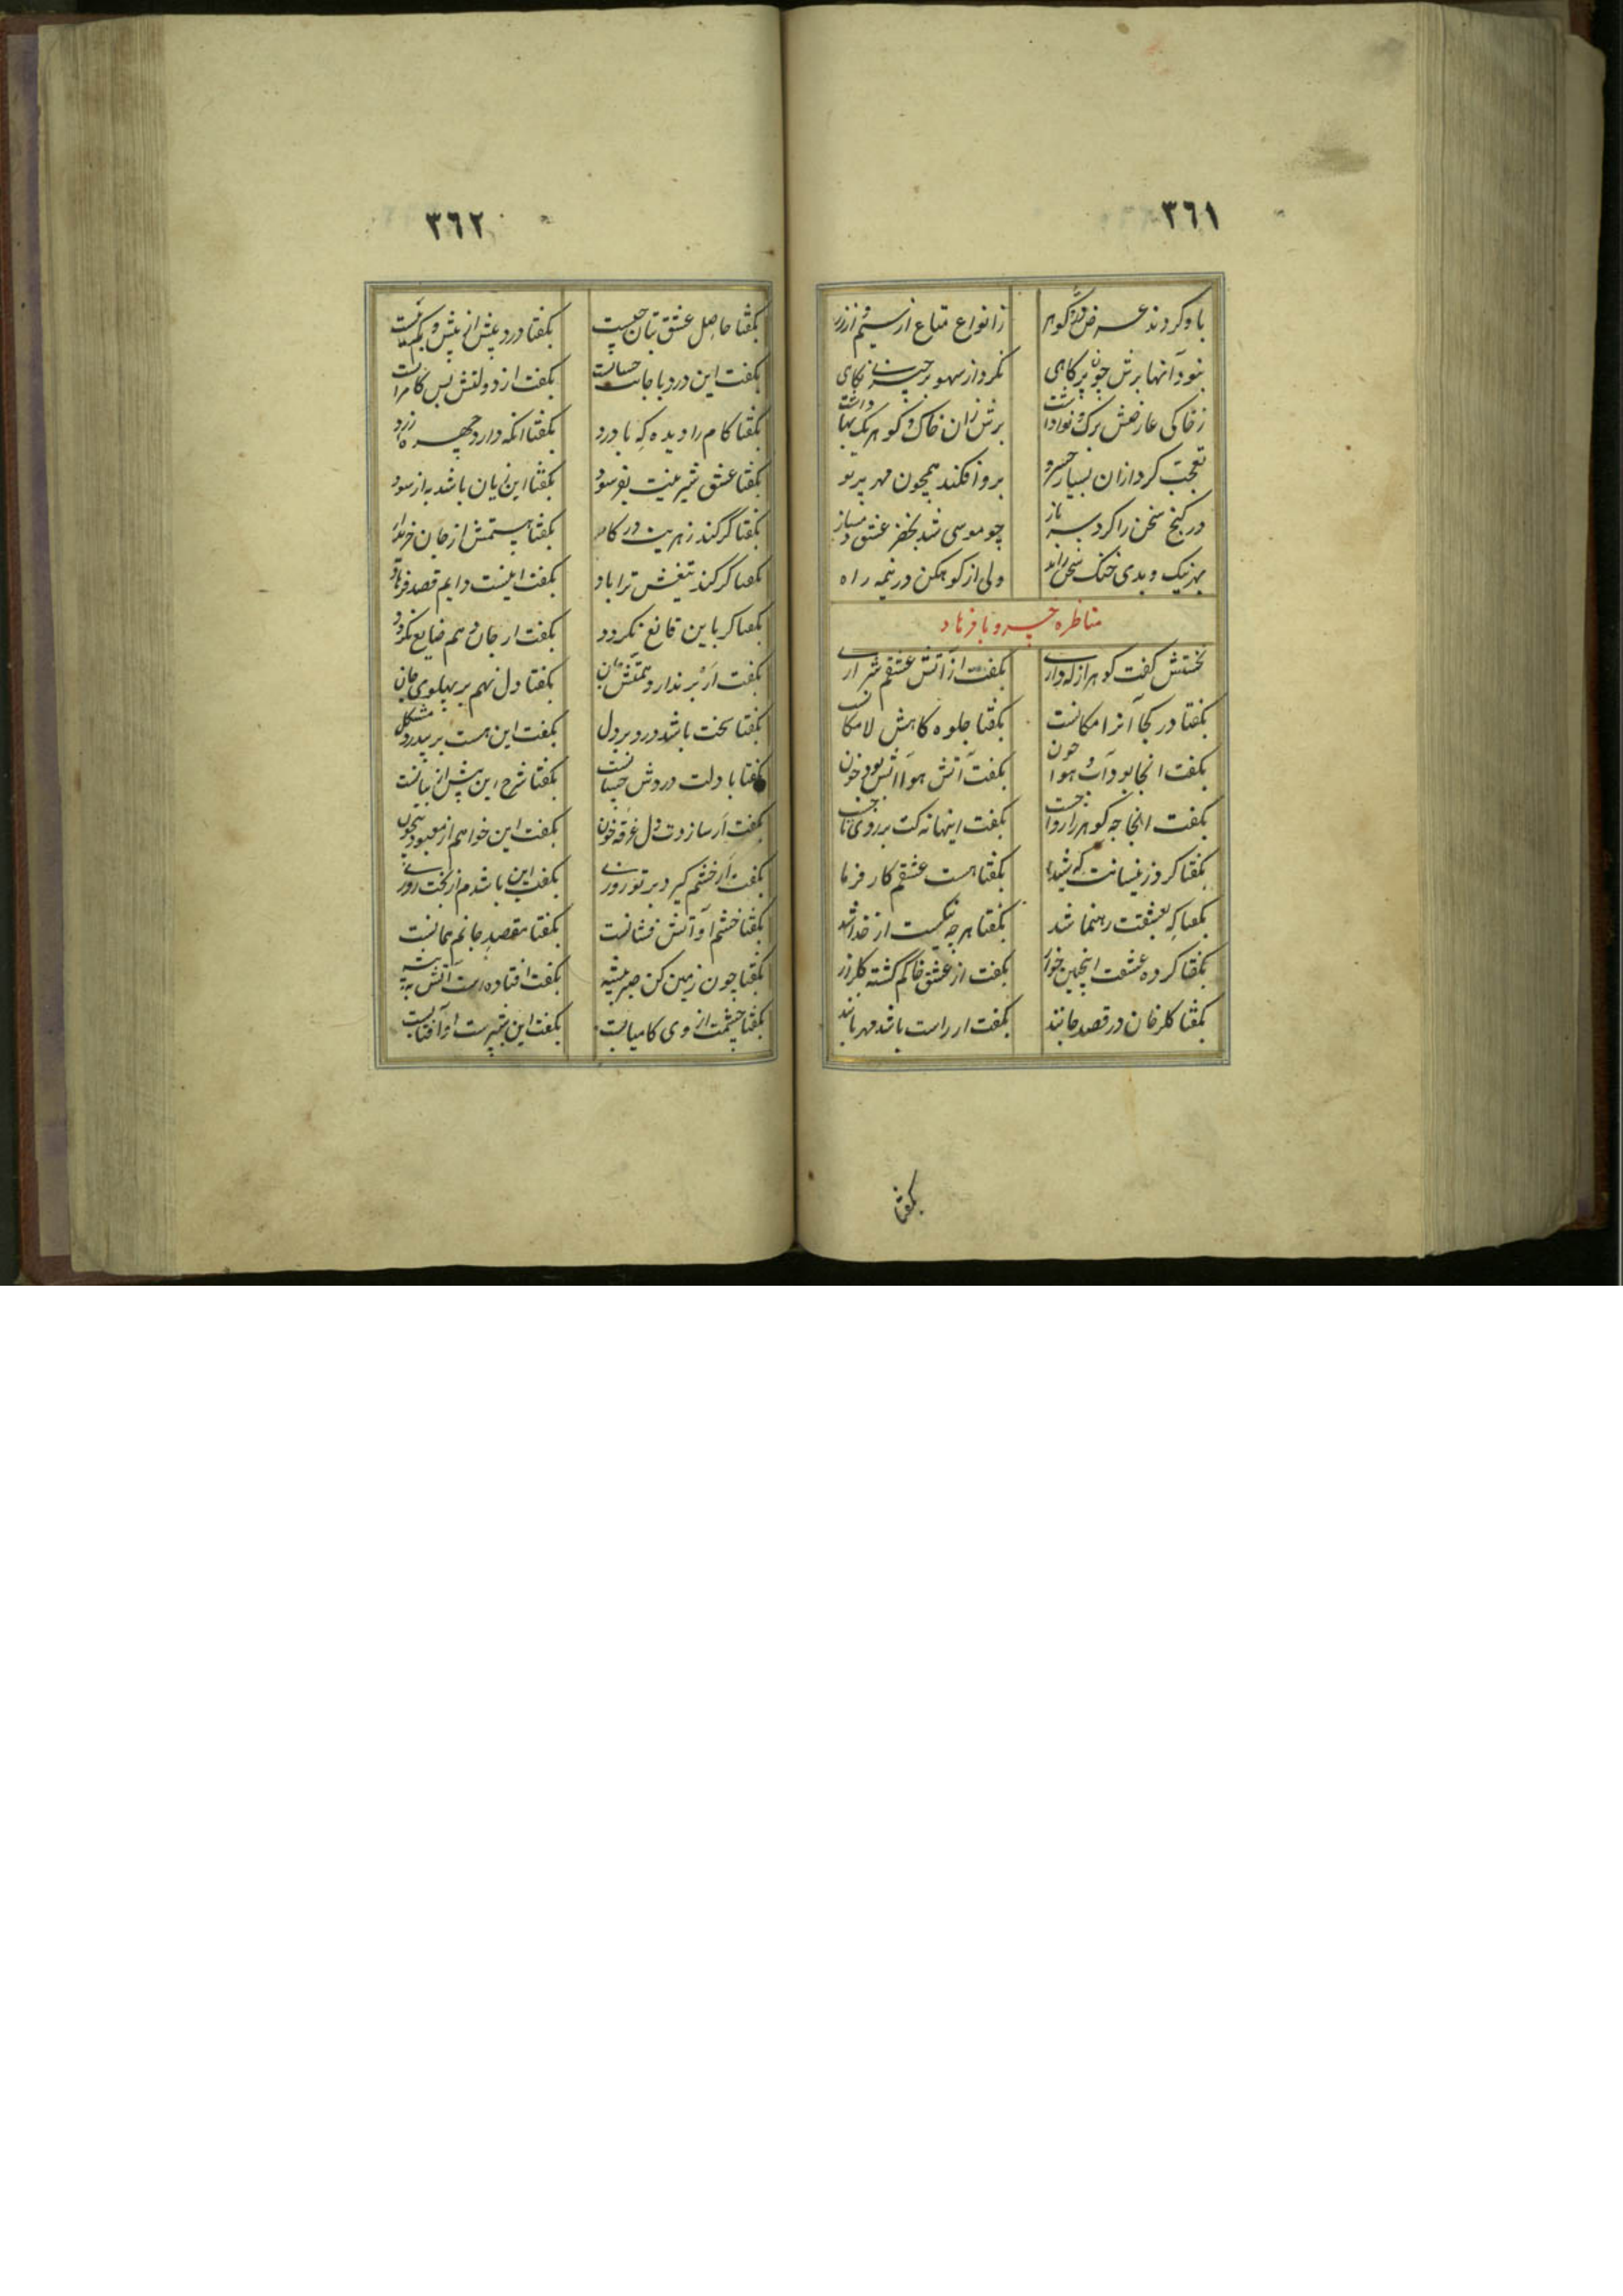 ٣٦١
باو کردند عرض در و گوهر زانواع متاع از سیم از زر
نبود آنها برش چون پر کاهی نکرد از سهو بر چیزی نکاهی
ز خاکی عارضش برک و نوا داشت برش زان خاک و گوهر یک بها داشت
تعجب کرد ازان بسیار خسرو برو افکند همچون مهر پرتو
در گنج سخن را کرد سر باز چو موسی شد بخضر عشق دمساز
بهر نیک و بدی خنک سخن راند ولی از کوهکن در نیمه راه
مناظره خسرو با فرهاد
نخستش گفت گوهر از که داری بگفت از آتش عشقم شراری
بگفتا در کجا آنرا مکانست بگفتا جلوه گاهش لامکانست
بگفت آنجا بود آب و هوا چون بگفت آتش هوا آتش بود خون
بگفت آنجا چه گوهر را رواجست بگفت اینها نه کت بر روی تاجست
بگفتا کرد زینسانت که شیدا بگفتا هست عشقم کار فرما
بگفتا که بعشقت رهنما شد بگفتا هر چه نیکست از خدا شد
بگفتا کرده عشقت اینچنین خوار بگفت از عشق خاکم گشته گلزار
بگفتا گلرخان در قصد جانند بگفت ار راست باشد مهربانند
بگفتا
٣٦٢
بگفتا حاصل عشق بتان چیست بگفتا درد بیش از بیش و کم نیست
بگفت این درد با جانت چسانست بگفت از دولتش بس کامرانست
بگفتا کام را دیده که با درد بگفتا آنکه دارد چهره زرد
بگفتا عشق شیرینت بفرسود بگفتا این زیان باشد به از سود
بگفتا گر کند زهریت در کام بگفتا هستمش از جان خریدار
بگفتا گر کند تیغش ترا یاد بگفت اینست دایم قصد فرهاد
بگفتا گر باین قانع نگردد بگفت ار جان دهم ضایع نگردد
بگفت ار بر ندارد همتش زان بگفتا دل نهم بر پهلوی جان
بگفتا سخت باشد درد بر دل بگفت این هست بر بیدرد مشکل
بگفتا با دلت دردش چسانست بگفتا شرح این بیش از بیانست
بگفت ار سازدت دل غرقه خون بگفت این خواهم از معبود بیچون
بگفت ار خشم گیرد بر تو روزی بگفت این باشدم از بخت روزی
بگفتا خشم او آتش فشانست بگفتا مقصد جانم همانست
بگفتا چون زمین کن صبر پیشه بگفت افتاده است آتش به بیشه
بگفتا چشمت از وی کامیابست بگفت این شپرست او آفتابست